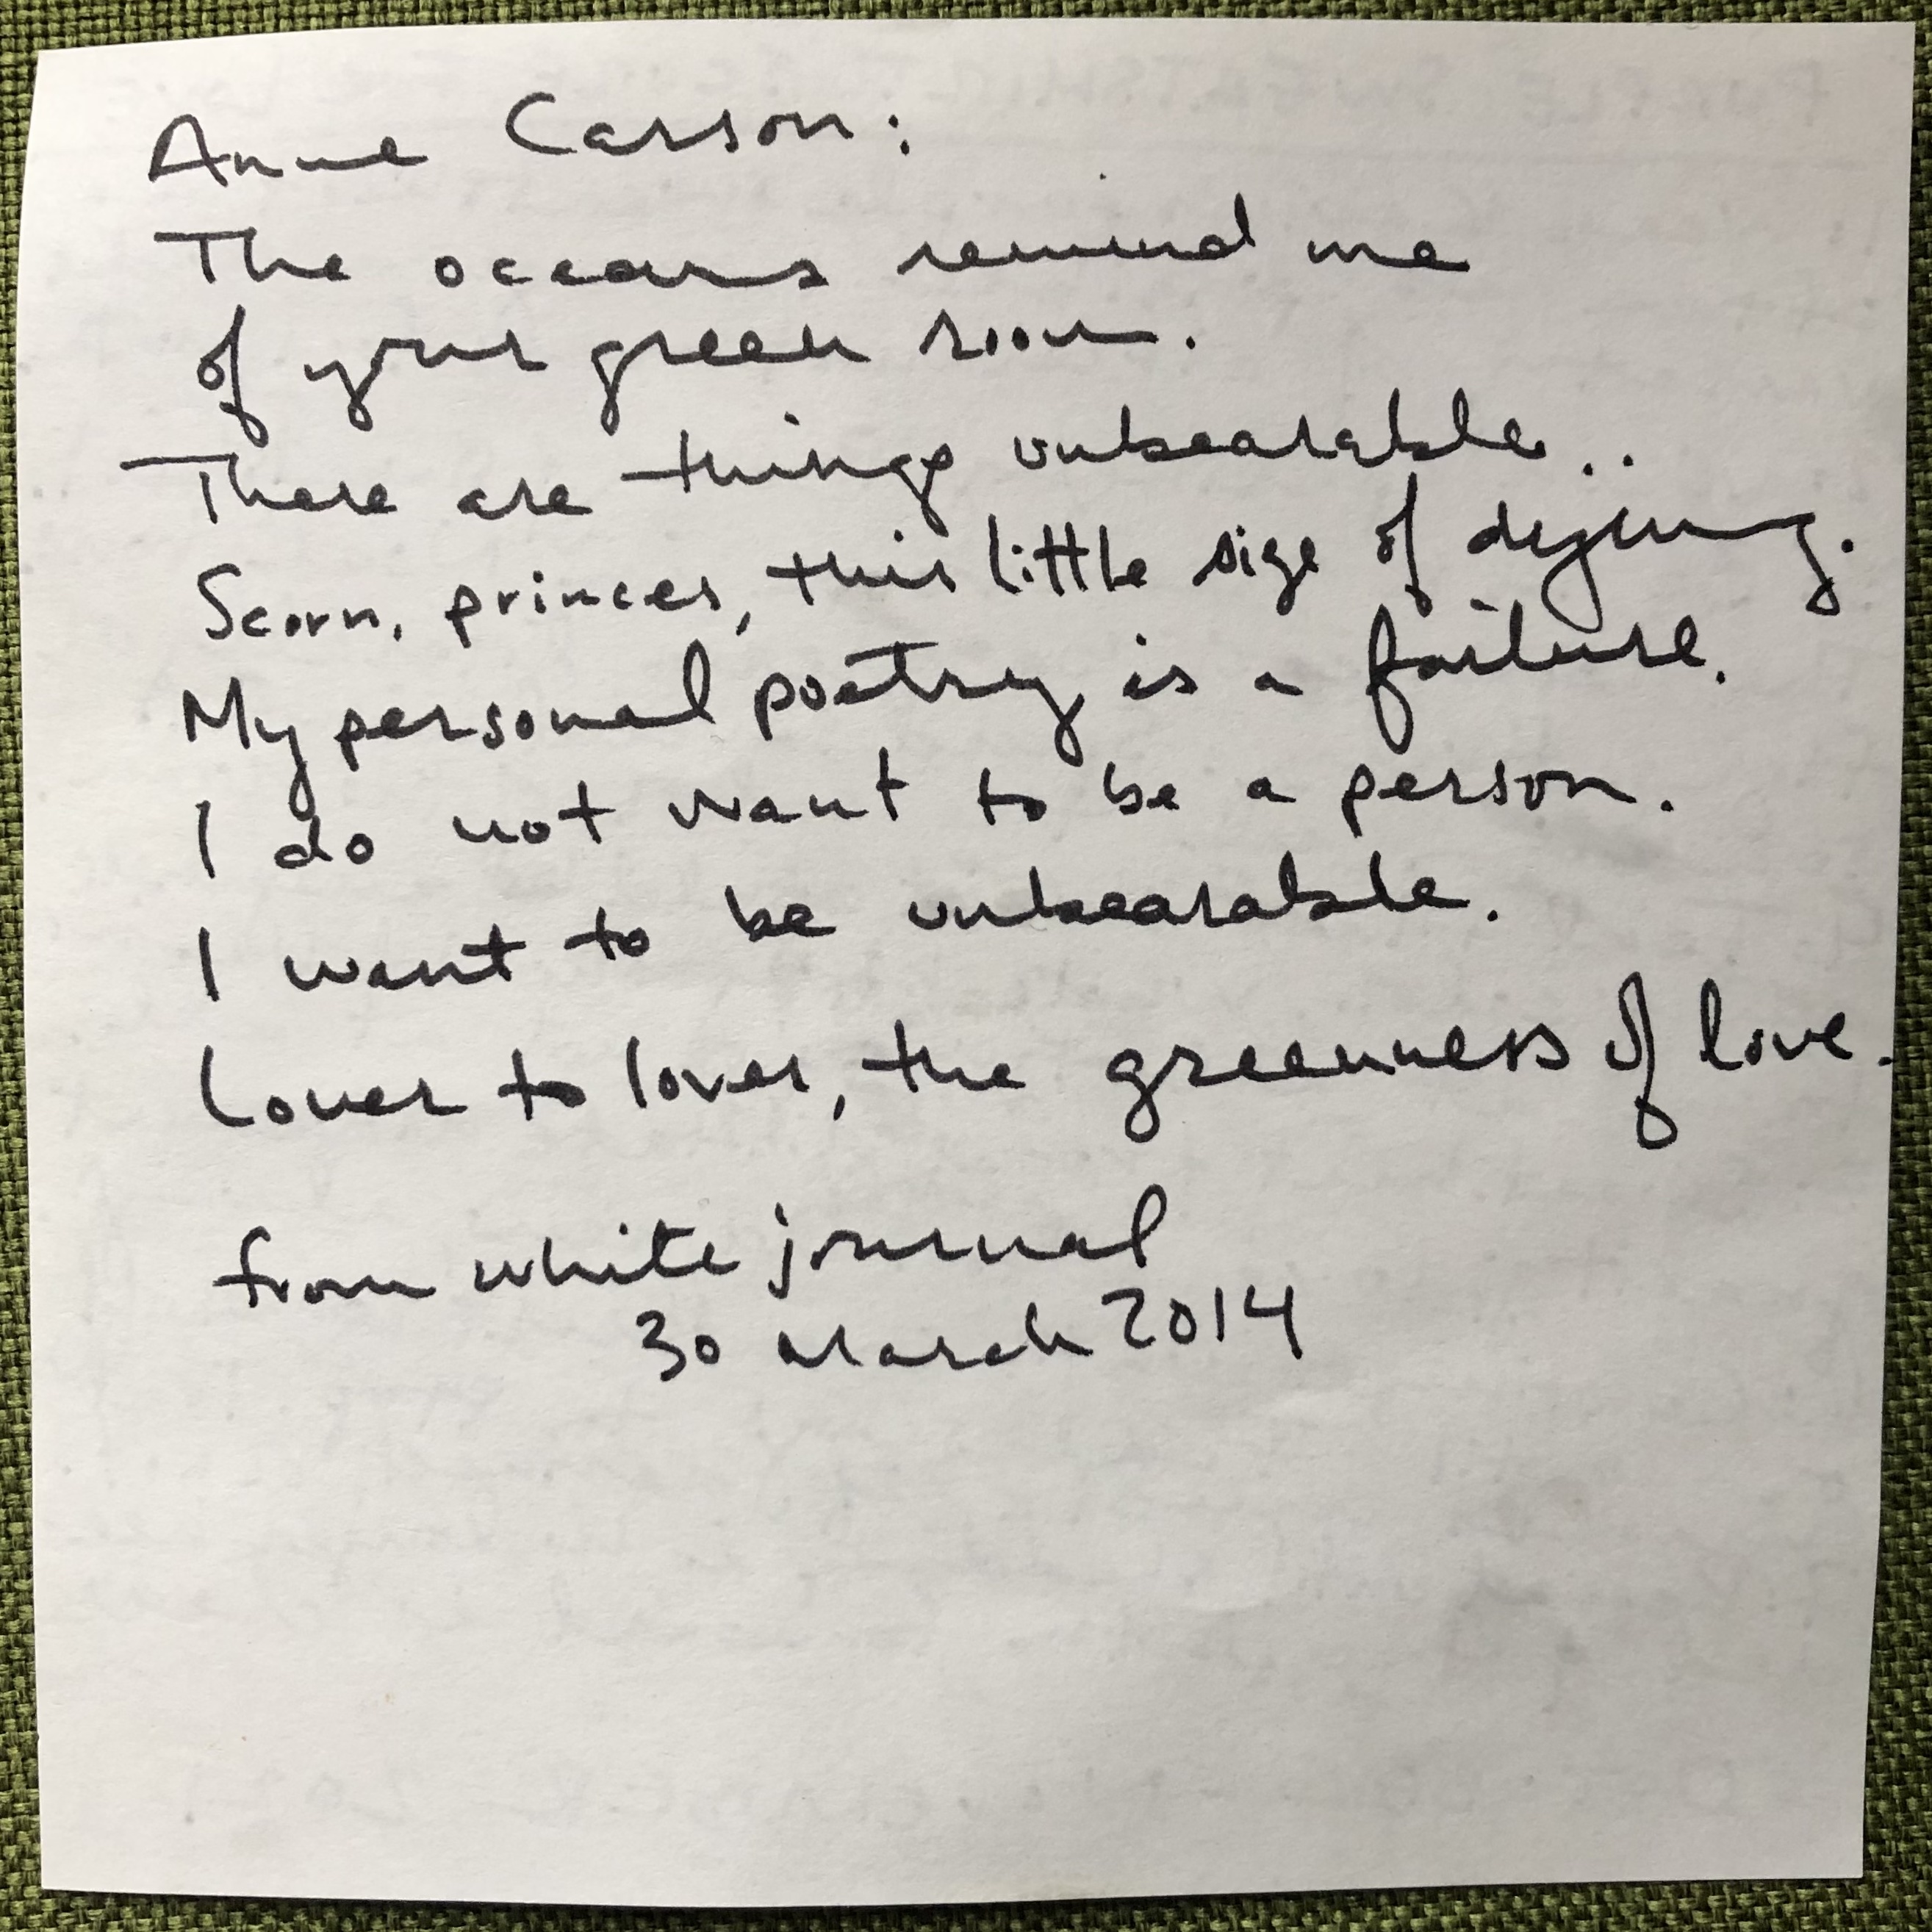 Anne Carson:
The oceans remind me
of your green room.
There are things unbearable..
Scorn, princes, this little size of dying.
My personal poetry is a failure.
I do not want to be a person.
I want to be unbearable.
Lover to lover, the greenness of love.
from white journal
30 March 2014